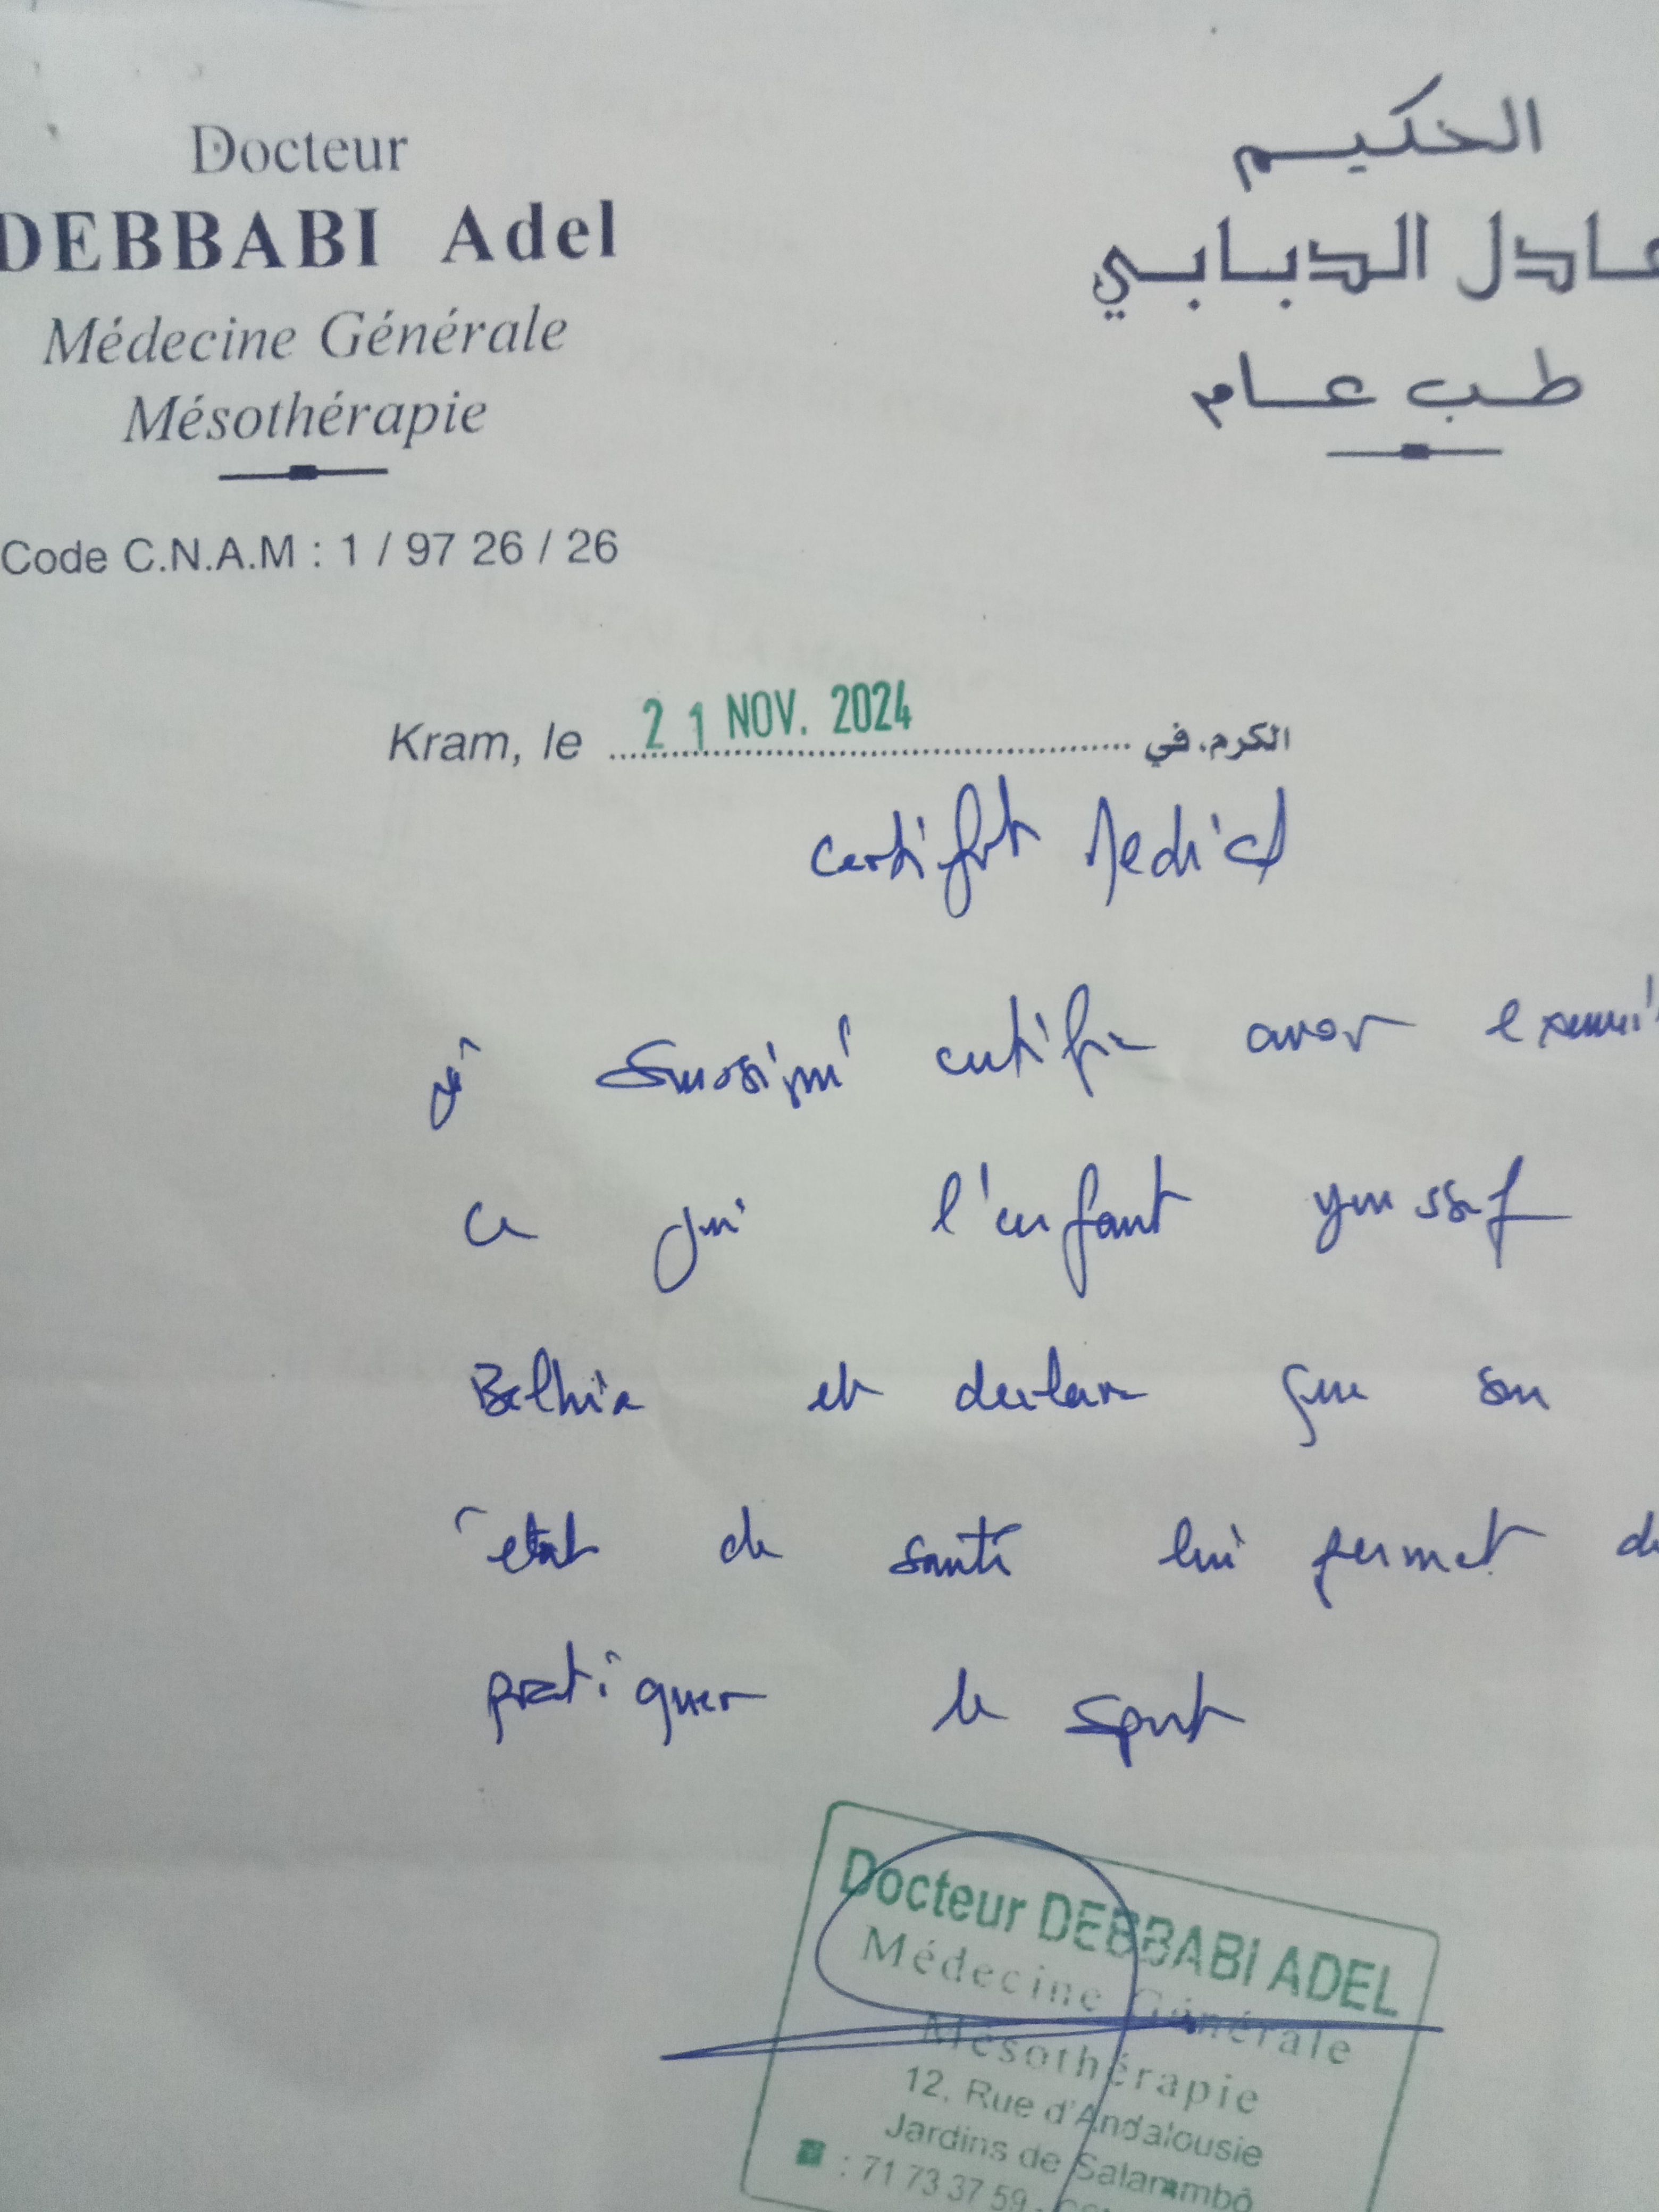 Docteur
DEBBABI Adel
Médecine Générale
Mésothérapie
Code C.N.A.M : 1 / 97 26 / 26
الحكيم
عادل الدبابي
طب عام
Kram, le 21 NOV. 2024 الكرم، في
Certificat Medical
Je soussigné certifie avoir examiné
ce jour l'enfant youssef
et declare que son
état de santé lui permet de
pratiquer le sport
Docteur DEBBABI ADEL
Médecine Générale
Mésothérapie
12, Rue d'Andalousie
Jardins de Salarambô
: 71 73 37 59 -